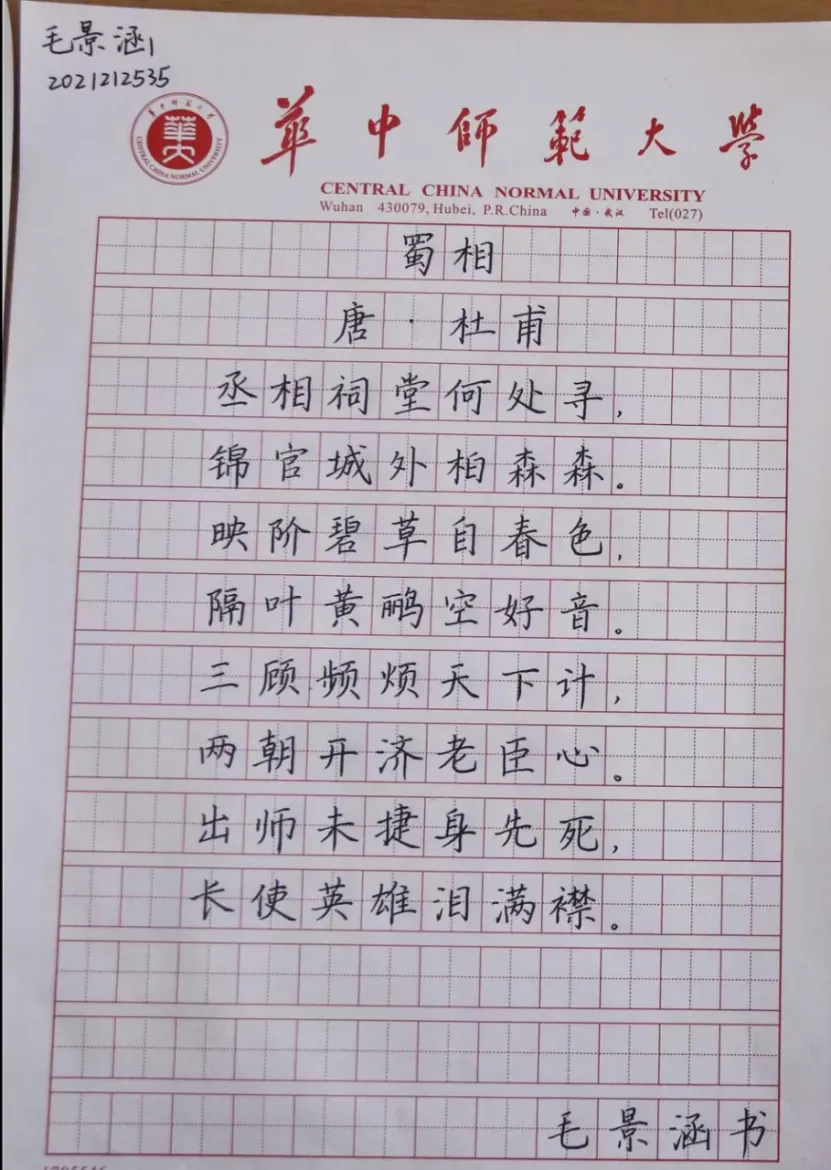 毛景涵
2021212535
華中師範大學
CENTRAL CHINA NORMAL UNIVERSITY
Wuhan 430079, Hubei, P.R.China 中国·武汉 Tel(027)
蜀相
唐·杜甫
丞相祠堂何处寻,
锦官城外柏森森。
映阶碧草自春色,
隔叶黄鹂空好音。
三顾频烦天下计,
两朝开济老臣心。
出师未捷身先死,
长使英雄泪满襟。
毛景涵书